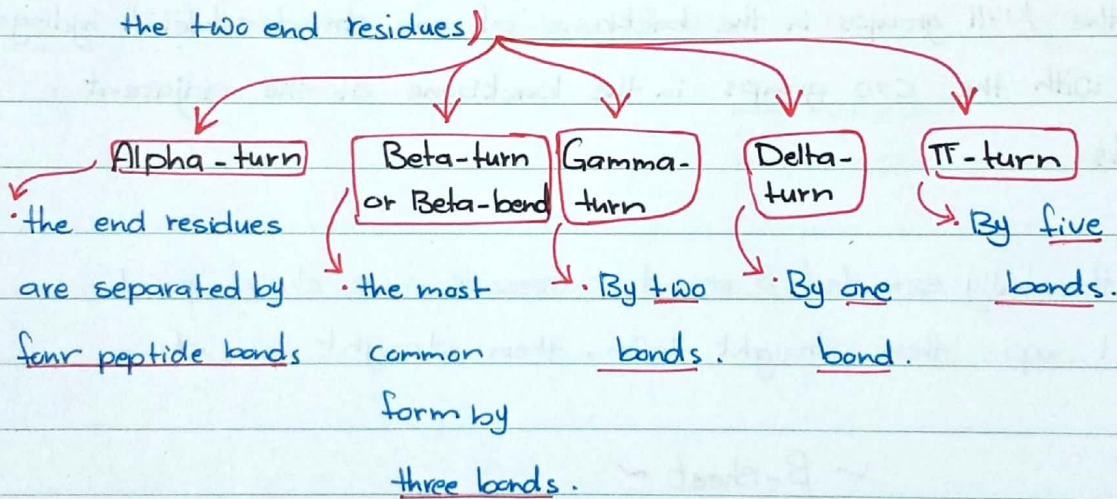 the two end residues)
Alpha-turn
• the end residues
are separated by
four peptide bonds
Beta-turn
or Beta-bend
• the most
common
form by
three bonds.
Gamma-
turn
• By two
bonds.
Delta-
turn
By one
bond.
π-turn
• By five
bonds.